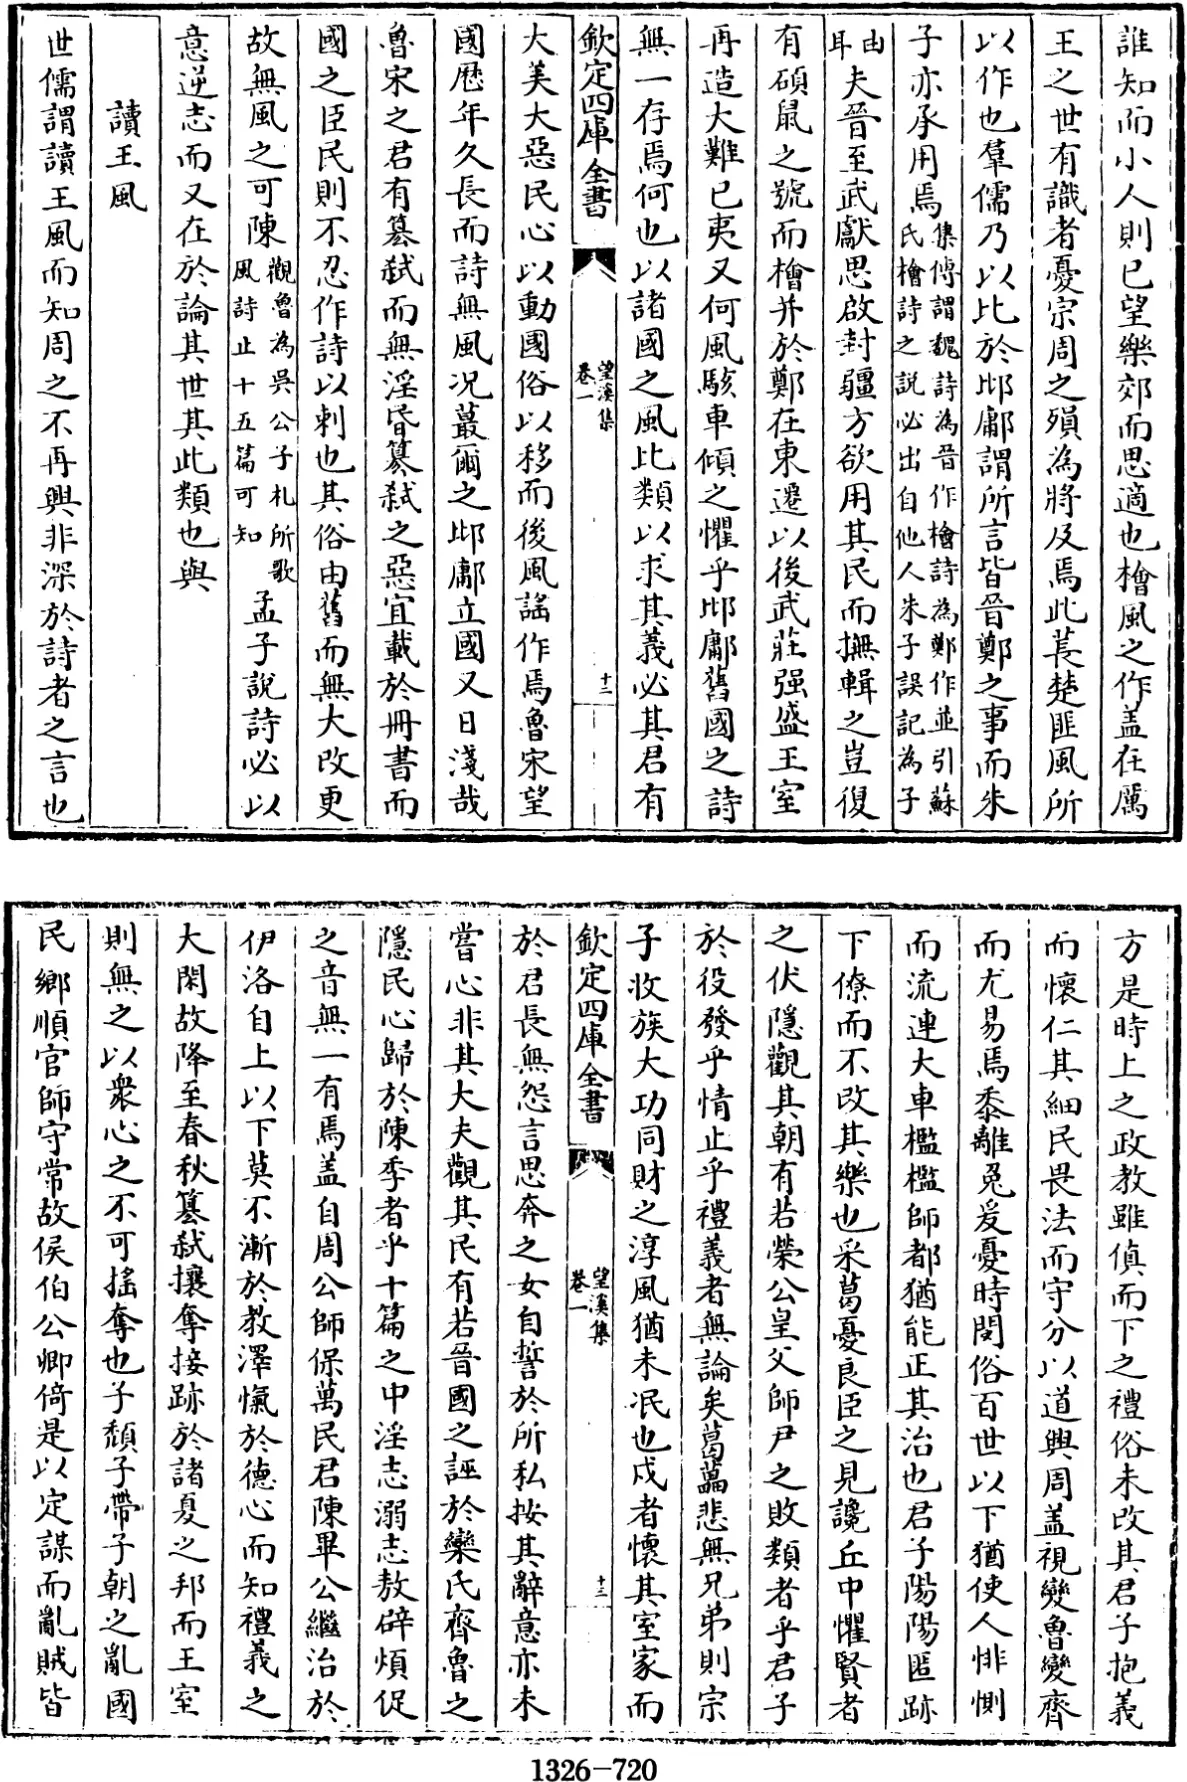 誰知而小人則已望樂郊而思適也檜風之作盖在厲
王之世有識者憂宗周之殞為將及焉此萇楚匪風所
以作也羣儒乃以比於邶鄘謂所言皆晉鄭之事而朱
子亦承用焉集傳謂魏詩為晉作檜詩為鄭作並引蘇氏檜詩之說必出自他人朱子誤記為子
由耳夫晉至武獻思啟封疆方欲用其民而撫輯之豈復
有碩鼠之號而檜并於鄭在東遷以後武莊强盛王室
再造大難已夷又何風駭車傾之懼乎邶鄘舊國之詩
無一存焉何也以諸國之風比類以求其義必其君有
欽定四庫全書
望溪集
卷一
十二
大美大惡民心以動國俗以移而後風謡作焉魯宋望
國歴年久長而詩無風况蕞爾之邶鄘立國又日淺哉
魯宋之君有簒弑而無淫昏簒弑之惡宜載於冊書而
國之臣民則不忍作詩以刺也其俗由舊而無大改更
故無風之可陳觀魯為吳公子札所歌風詩止十五篇可知孟子說詩必以
意逆志而又在於論其世其此類也與
讀王風
世儒謂讀王風而知周之不再興非深於詩者之言也
方是時上之政教雖傎而下之禮俗未改其君子抱義
而懷仁其細民畏法而守分以道興周盖視變魯變齊
而尤易焉黍離兔爰憂時閔俗百世以下猶使人悱惻
而流連大車檻檻師都猶能正其治也君子陽陽匿跡
下僚而不改其樂也采葛憂良臣之見讒丘中懼賢者
之伏隱觀其朝有若榮公皇父師尹之敗類者乎君子
於役發乎情止乎禮義者無論矣葛藟悲無兄弟則宗
子收族大功同財之淳風猶未泯也戍者懷其室家而
欽定四庫全書
望溪集
卷一
十三
於君長無怨言思奔之女自誓於所私按其辭意亦未
嘗心非其大夫觀其民有若晉國之誣於欒氏齊魯之
隱民心歸於陳季者乎十篇之中淫志溺志敖辟煩促
之音無一有焉盖自周公師保萬民君陳畢公繼治於
伊洛自上以下莫不漸於教澤愾於德心而知禮義之
大閑故降至春秋簒弑攘奪接跡於諸夏之邦而王室
則無之以衆心之不可揺奪也子頽子帶子朝之亂國
民鄉順官師守常故侯伯公卿倚是以定謀而亂賊皆
1326-720